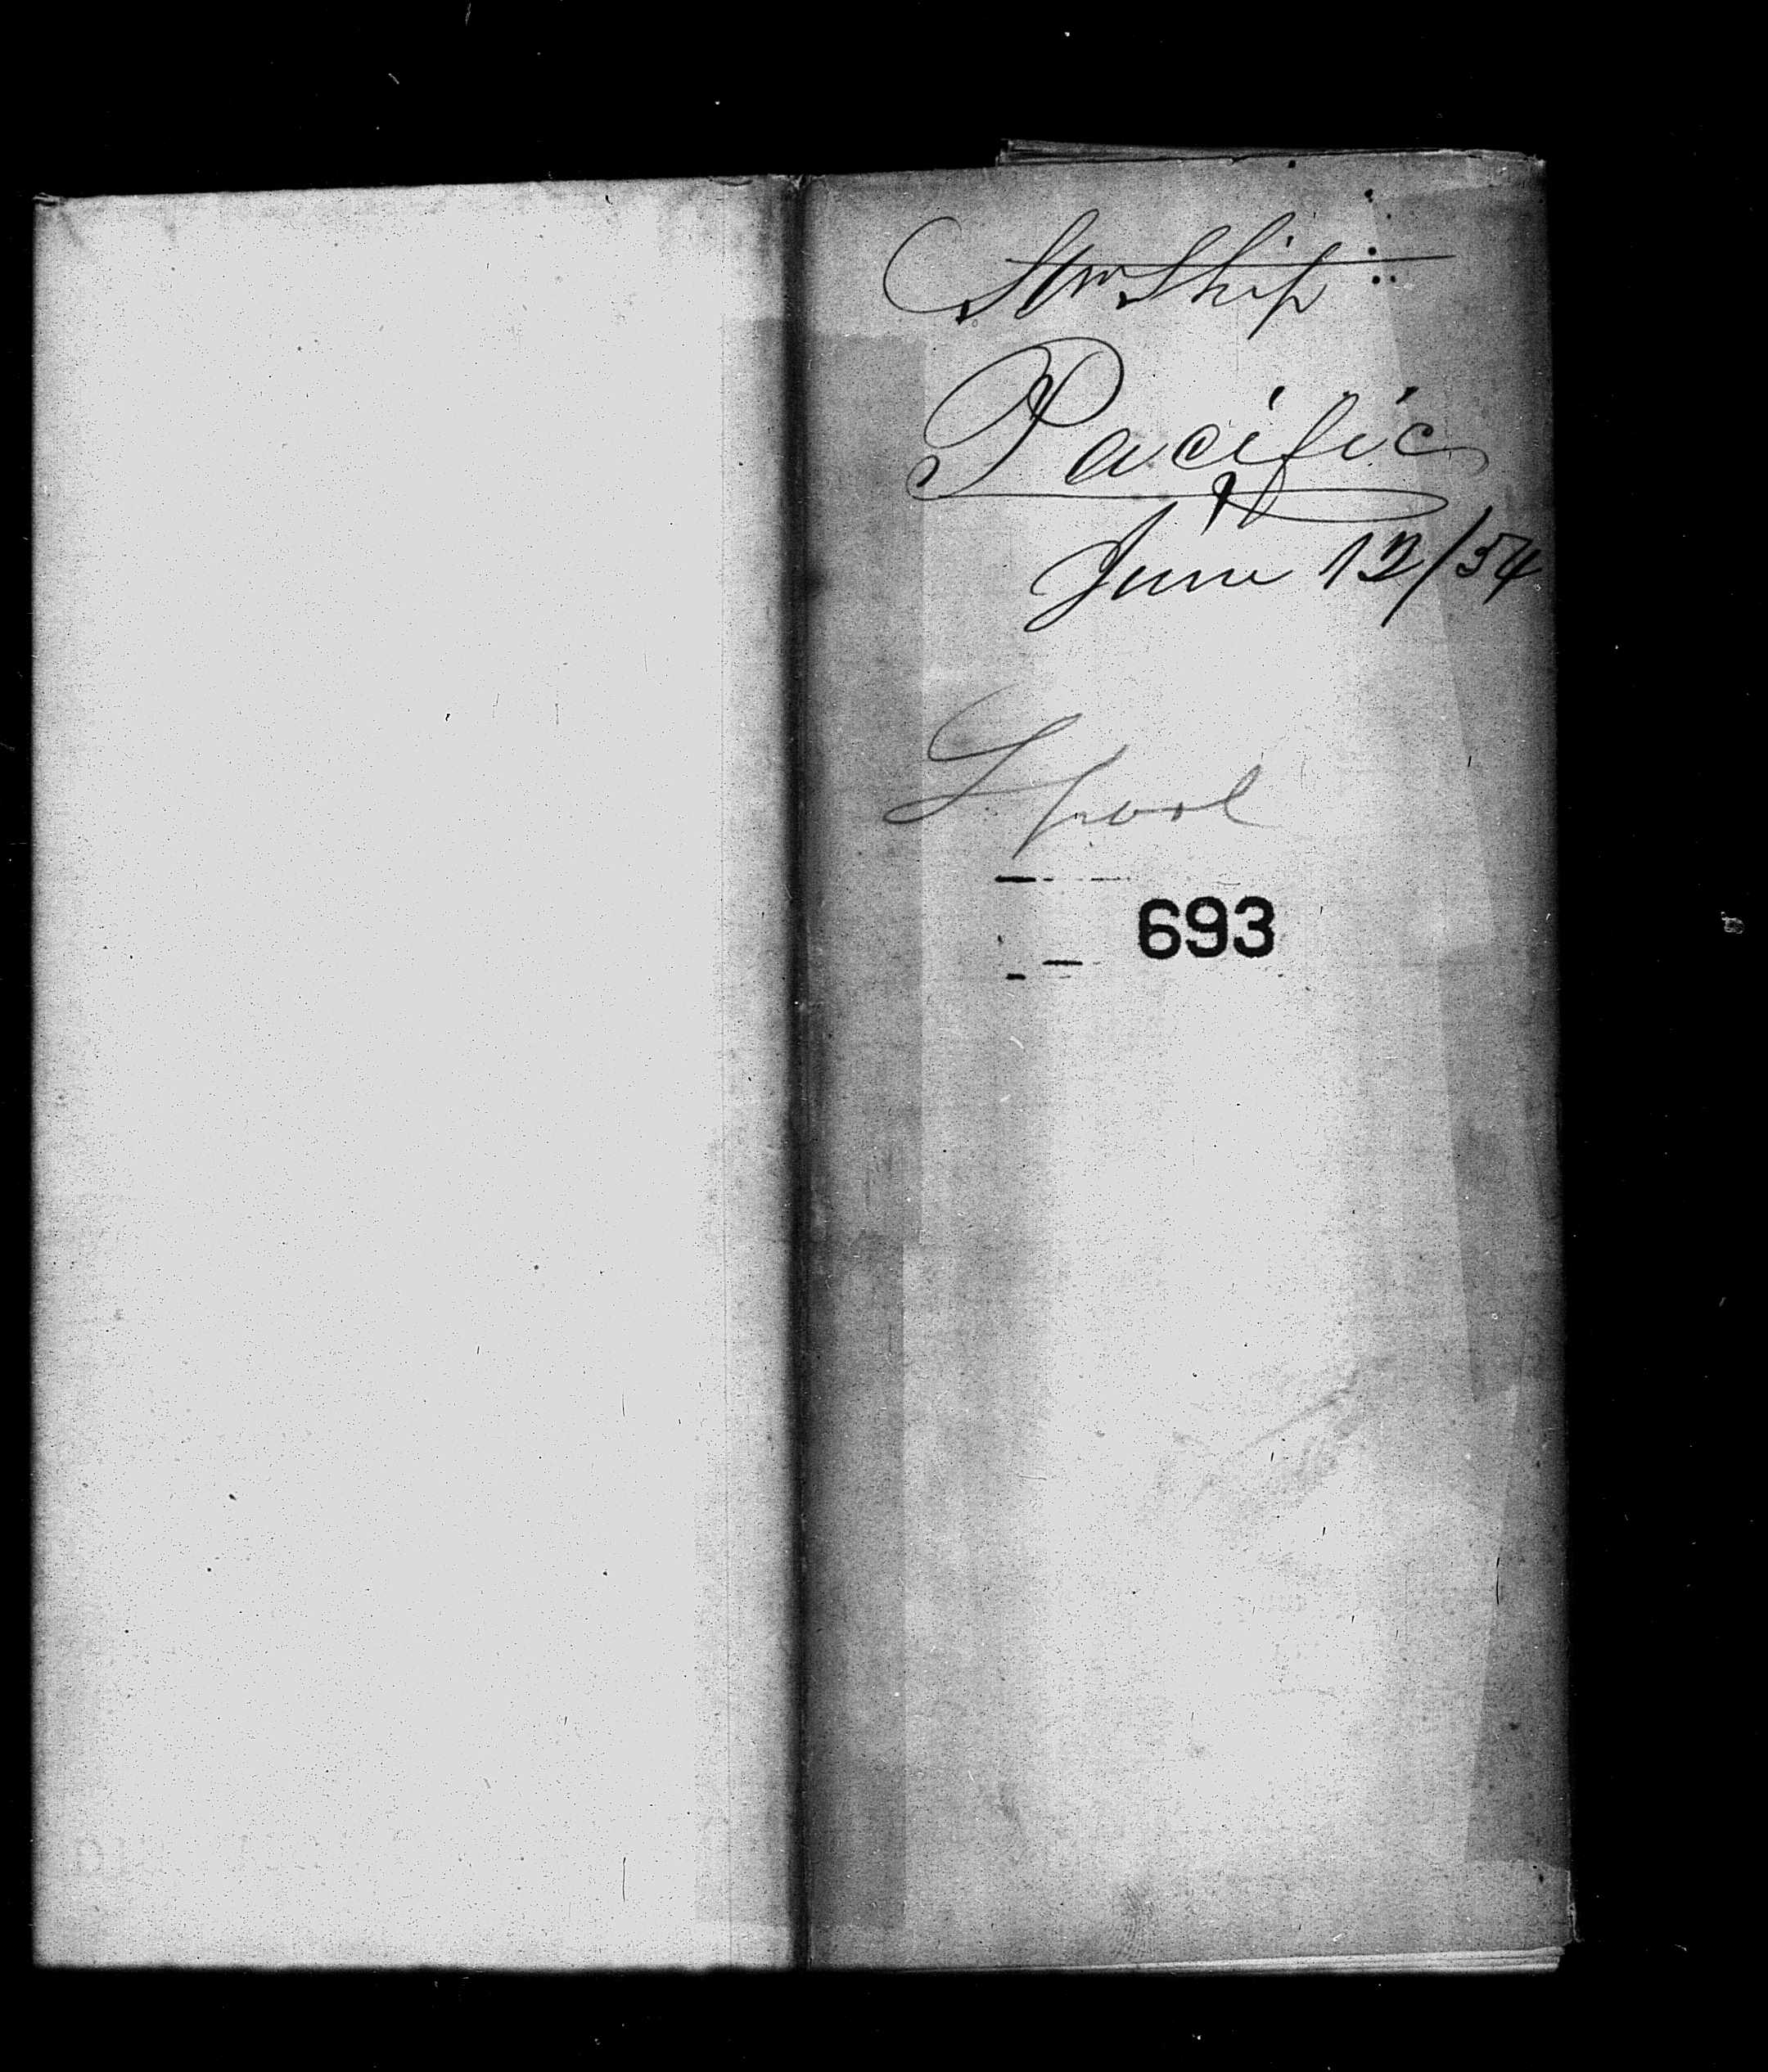 Stm Ship
Pacific
June 12/54
Lpool
693